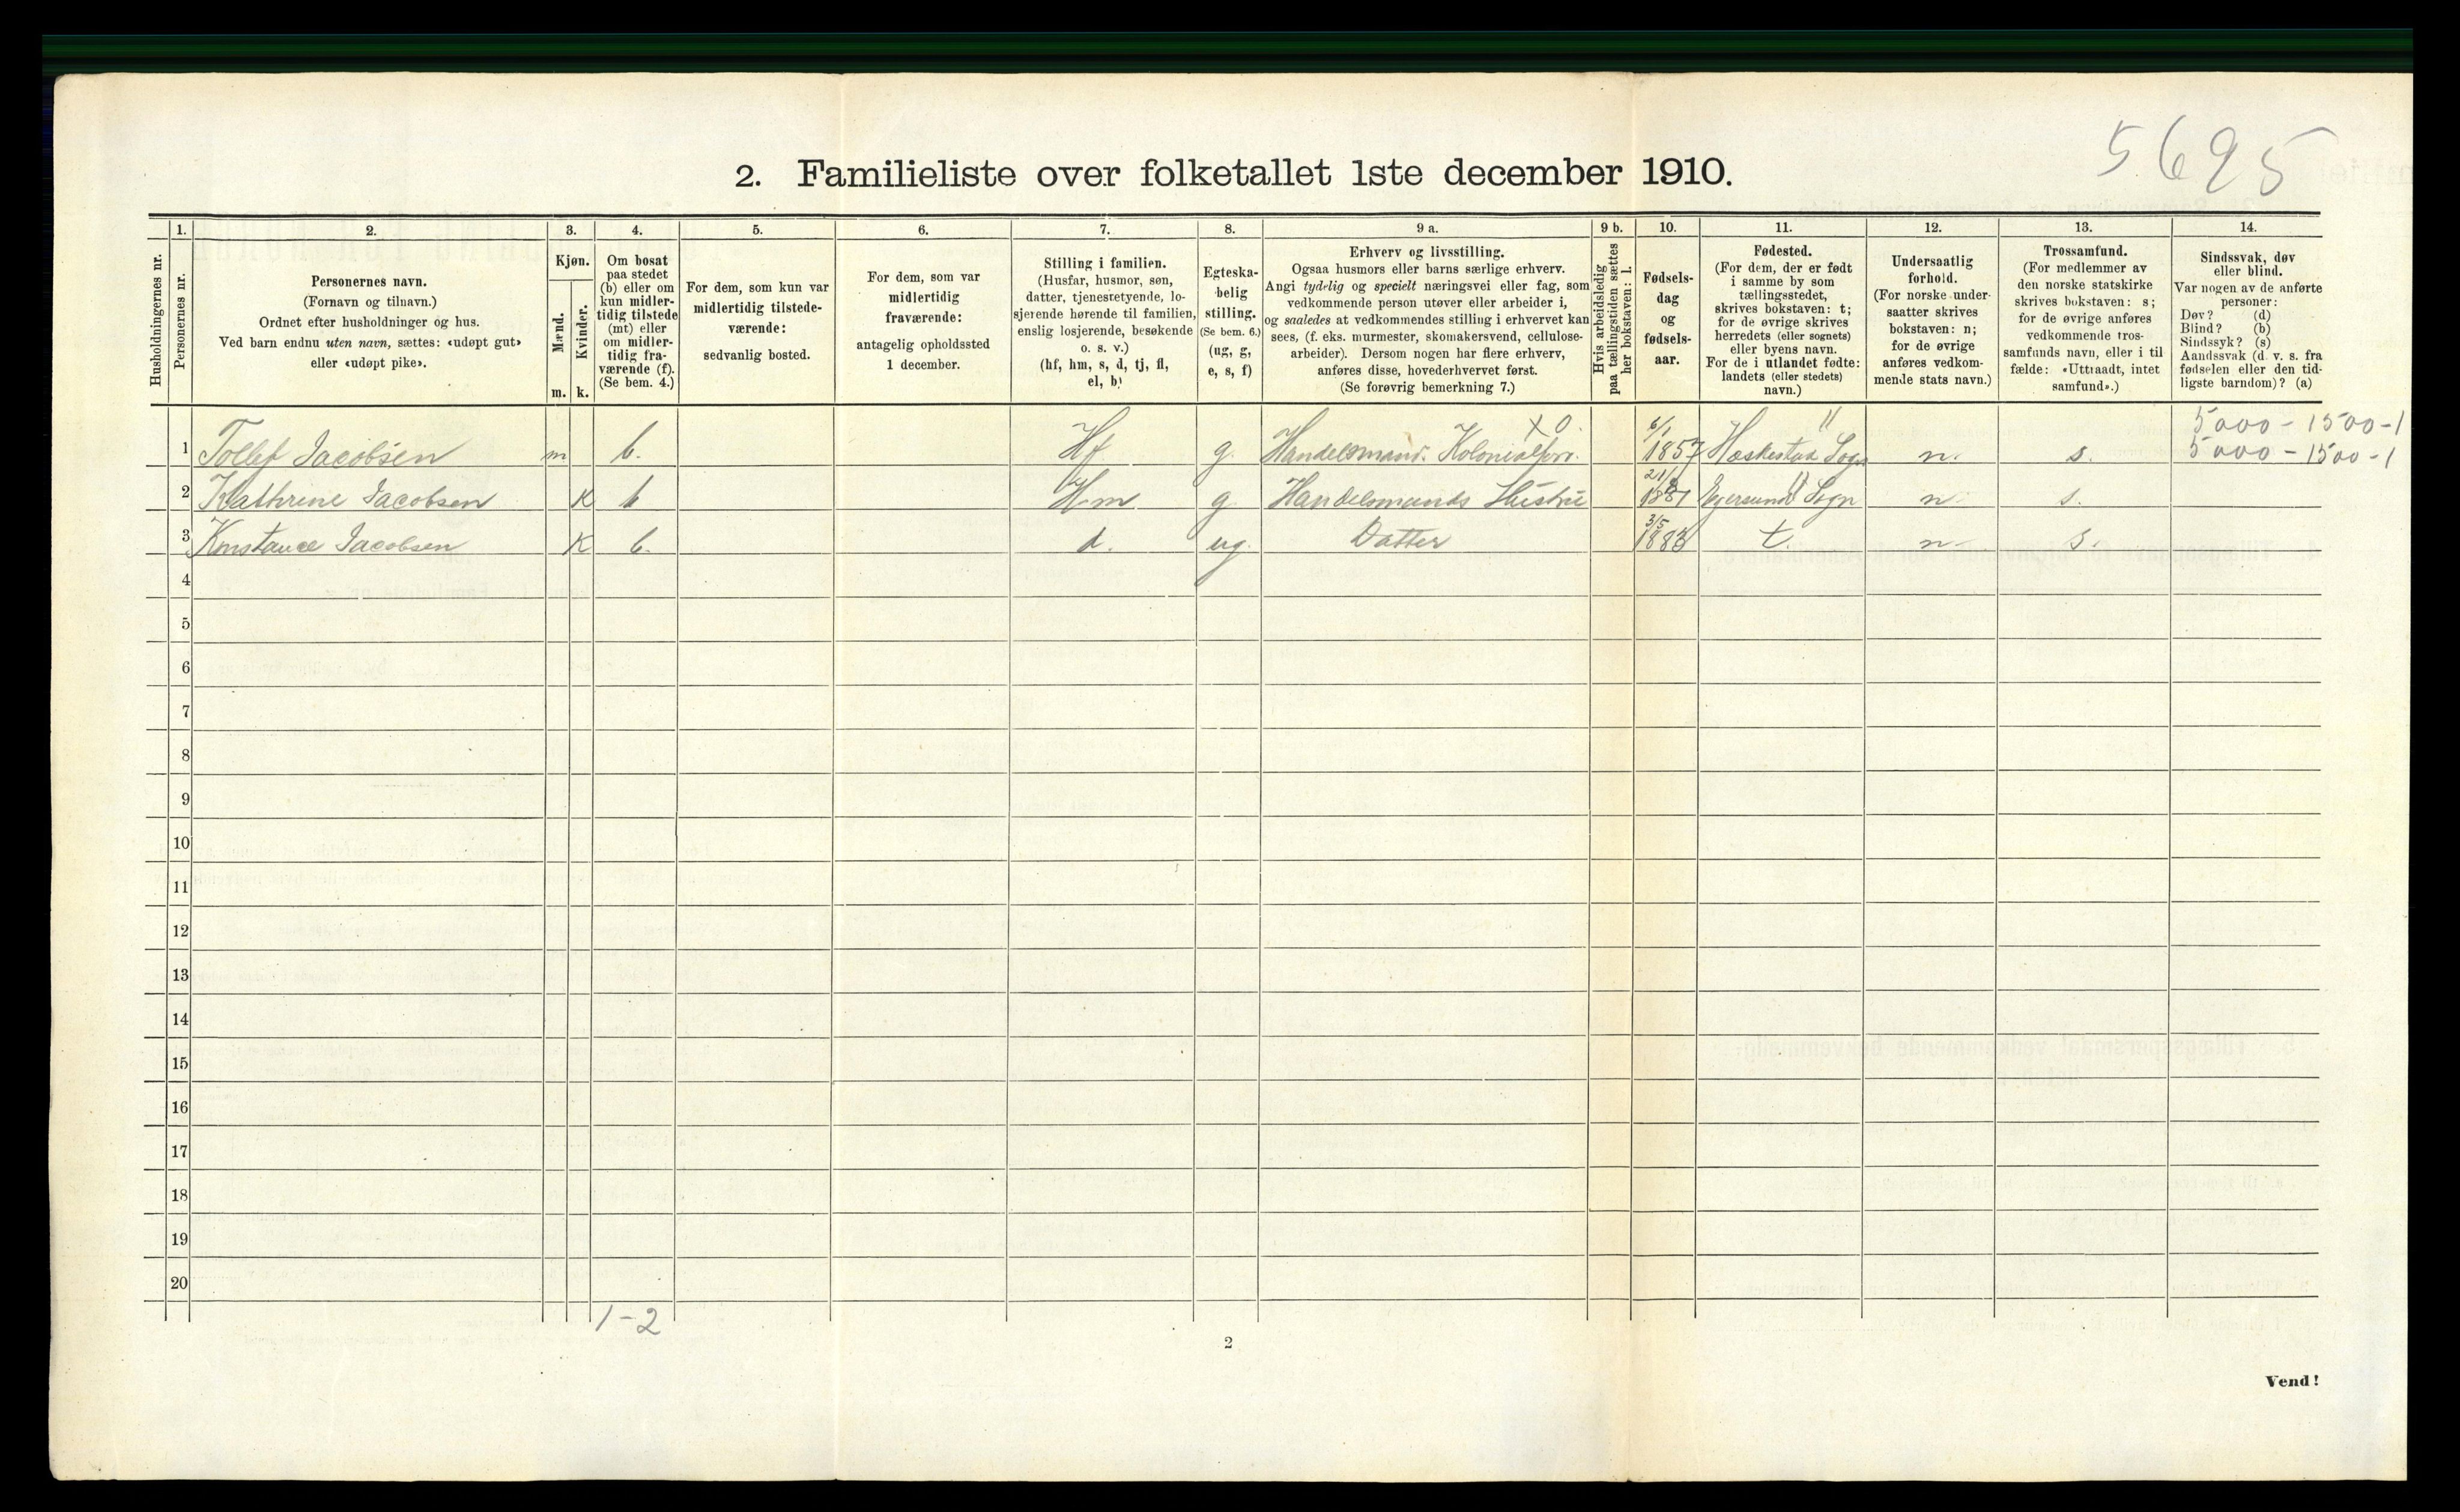 5695
2. Familieliste over folketallet 1ste december 1910.
Husholdningernes nr.
1.
Personernes nr.
2.
Personernes navn.
(Fornavn og tilnavn.)
Ordnet efter husholdninger og hus.
Ved barn endnu uten navn, sættes: «udøpt gut»
eller «udøpt pike».
3.
Kjøn.
Mænd.
Kvinder.
m.
k.
4.
Om bosat
paa stedet
(b) eller om
kun midler-
tidig tilstede
(mt) eller
om midler-
tidig fra-
værende (f).
(Se bem. 4.)
5.
For dem, som kun var
midlertidig tilstede-
værende:
sedvanlig bosted.
6.
For dem, som var
midlertidig
fraværende:
antagelig opholdssted
1 december.
7.
Stilling i familien.
(Husfar, husmor, søn,
datter, tjenestetyende, lo-
sjerende hørende til familien,
enslig losjerende, besøkende
o. s. v.)
(hf, hm, s, d, tj, fl,
el, b)
8.
Egteska-
belig
stilling.
(Se bem. 6.)
(ug, g,
e, s, f)
9 a.
Erhverv og livsstilling.
Ogsaa husmors eller barns særlige erhverv.
Angi tydelig og specielt næringsvei eller fag, som
vedkommende person utøver eller arbeider i,
og saaledes at vedkommendes stilling i erhvervet kan
sees, (f. eks. murmester, skomakersvend, cellulose-
arbeider). Dersom nogen har flere erhverv,
anføres disse, hovederhvervet først.
(Se forøvrig bemerkning 7.)
9 b.
Hvis arbeidsledig
paa tællingstiden sættes
her bokstaven: l.
10.
Fødsels-
dag
og
fødsels-
aar.
11.
Fødested.
(For dem, der er født
i samme by som
tællingsstedet,
skrives bokstaven: t;
for de øvrige skrives
herredets (eller sognets)
eller byens navn.
For de i utlandet fødte:
landets (eller stedets)
navn.)
12.
Undersaatlig
forhold.
(For norske under-
saatter skrives
bokstaven: n;
for de øvrige
anføres vedkom-
mende stats navn.)
13.
Trossamfund.
(For medlemmer av
den norske statskirke
skrives bokstaven: s;
for de øvrige anføres
vedkommende tros-
samfunds navn, eller i til
fælde: «Uttraadt, intet
samfund».)
14.
Sindssvak, døv
eller blind.
Var nogen av de anførte
personer:
Døv? (d)
Blind? (b)
Sindssyk? (s)
Aandssvak (d. v. s. fra
fødselen eller den tid-
ligste barndom)? (a)
X0. 6/1 " 5000 - 1500 - 1
1 Tollef Jacobsen m b. Hf g. Handelsmand. Kolonialforr. 1857 Heskestad Sogn n. s. 5000 - 1500 - 1
2 Kathrine Jacobsen K b Hm g. Handelsmands Hustru Egersund Sogn n. s.
3 Konstance Jacobsen K b. d. ug. Datter 3/5 1883 t. n. s.
4
5
6
7
8
9
10
11
12
13
14
15
16
17
18
19
20
1-2
2
Vend!